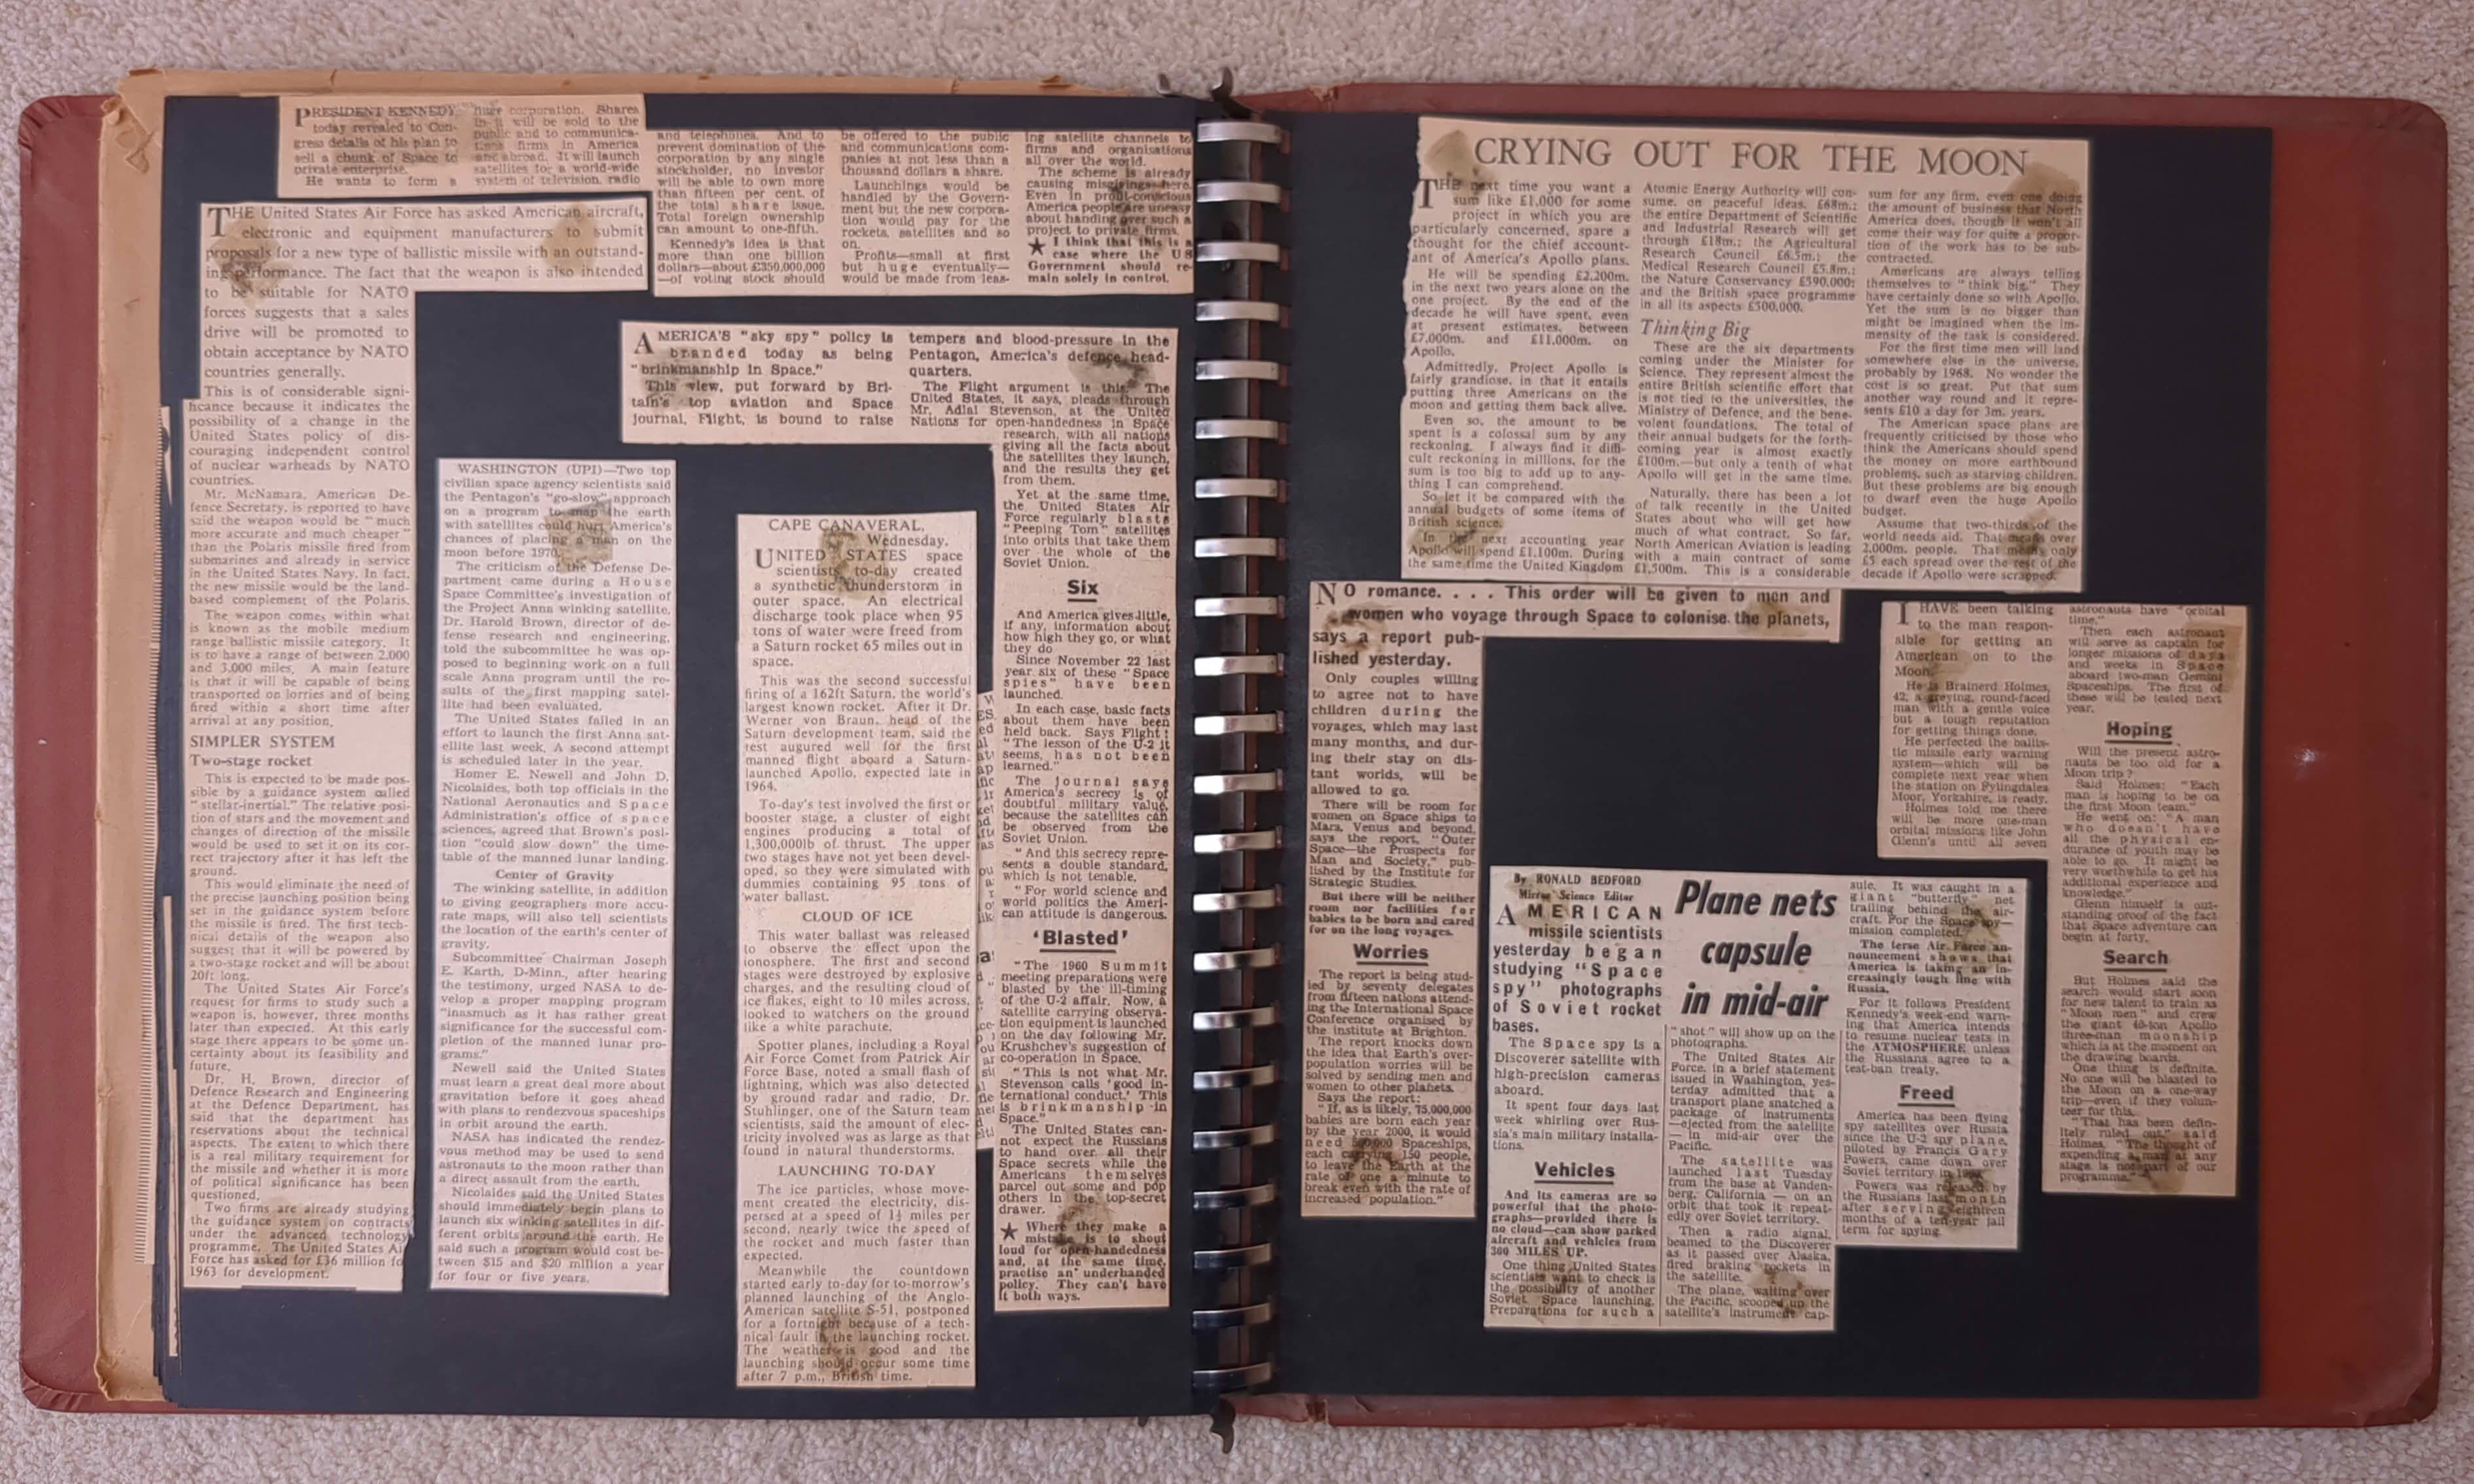 PRESIDENT KENNEDY
today revealed to Con-
gress details of his plan to
sell a chunk of Space to
private enterprise.
He wants to form a
huge corporation. Shares
in it will be sold to the
public and to communica-
tions firms in America
and abroad. It will launch
satellites for a world-wide
system of television, radio
and telephones. And to
prevent domination of the
corporation by any single
stockholder, no investor
will be able to own more
than fifteen per cent. of
the total share issue.
Total foreign ownership
can amount to one-fifth.
Kennedy's idea is that
more than one billion
dollars—about £350,000,000
—of voting stock should
be offered to the public
and communications com-
panies at not less than a
thousand dollars a share.
Launchings would be
handled by the Govern-
ment but the new corpora-
tion would pay for the
rockets, satellites and so
on.
Profits—small at first
but huge eventually—
would be made from leas-
ing satellite channels to
firms and organisations
all over the world.
The scheme is already
causing misgivings here.
Even in profit-conscious
America people are uneasy
about handing over such a
project to private firms.
★ I think that this is a
case where the US
Government should re-
main solely in control.
THE United States Air Force has asked American aircraft,
electronic and equipment manufacturers to submit
proposals for a new type of ballistic missile with an outstand-
ing performance. The fact that the weapon is also intended
to be suitable for NATO
forces suggests that a sales
drive will be promoted to
obtain acceptance by NATO
countries generally.
This is of considerable signi-
ficance because it indicates the
possibility of a change in the
United States policy of dis-
couraging independent control
of nuclear warheads by NATO
countries.
Mr. McNamara, American De-
fence Secretary, is reported to have
said the weapon would be "much
more accurate and much cheaper"
than the Polaris missile fired from
submarines and already in service
in the United States Navy. In fact,
the new missile would be the land-
based complement of the Polaris.
The weapon comes within what
is known as the mobile medium
range ballistic missile category. It
is to have a range of between 2,000
and 3,000 miles. A main feature
is that it will be capable of being
transported on lorries and of being
fired within a short time after
arrival at any position.
SIMPLER SYSTEM
Two-stage rocket
This is expected to be made pos-
sible by a guidance system called
"stellar-inertial." The relative posi-
tion of stars and the movement and
changes of direction of the missile
would be used to set it on its cor-
rect trajectory after it has left the
ground.
This would eliminate the need of
the precise launching position being
set in the guidance system before
the missile is fired. The first tech-
nical details of the weapon also
suggest that it will be powered by
a two-stage rocket and will be about
20ft long.
The United States Air Force's
request for firms to study such a
weapon is, however, three months
later than expected. At this early
stage there appears to be some un-
certainty about its feasibility and
future.
Dr. H. Brown, director of
Defence Research and Engineering
at the Defence Department, has
said that the department has
reservations about the technical
aspects. The extent to which there
is a real military requirement for
the missile and whether it is more
of political significance has been
questioned.
Two firms are already studying
the guidance system on contracts
under the advanced technology
programme. The United States Air
Force has asked for £36 million fo
1963 for development.
WASHINGTON (UPI)—Two top
civilian space agency scientists said
the Pentagon's "go-slow" approach
on a program to map the earth
with satellites could hurt America's
chances of placing a man on the
moon before 1970.
The criticism of the Defense De-
partment came during a House
Space Committee's investigation of
the Project Anna winking satellite.
Dr. Harold Brown, director of de-
fense research and engineering,
told the subcommittee he was op-
posed to beginning work on a full
scale Anna program until the re-
sults of the first mapping satel-
lite had been evaluated.
The United States failed in an
effort to launch the first Anna sat-
ellite last week. A second attempt
is scheduled later in the year.
Homer E. Newell and John D.
Nicolaides, both top officials in the
National Aeronautics and Space
Administration's office of space
sciences, agreed that Brown's posi-
tion "could slow down" the time-
table of the manned lunar landing.
Center of Gravity
The winking satellite, in addition
to giving geographers more accu-
rate maps, will also tell scientists
the location of the earth's center of
gravity.
Subcommittee Chairman Joseph
E. Karth, D-Minn., after hearing
the testimony, urged NASA to de-
velop a proper mapping program
"inasmuch as it has rather great
significance for the successful com-
pletion of the manned lunar pro-
grams."
Newell said the United States
must learn a great deal more about
gravitation before it goes ahead
with plans to rendezvous spaceships
in orbit around the earth.
NASA has indicated the rendez-
vous method may be used to send
astronauts to the moon rather than
a direct assault from the earth.
Nicolaides said the United States
should immediately begin plans to
launch six winking satellites in dif-
ferent orbits around the earth. He
said such a program would cost be-
tween $15 and $20 million a year
for four or five years.
AMERICA'S "sky spy" policy is
branded today as being
"brinkmanship in Space."
This view, put forward by Bri-
tain's top aviation and Space
journal, Flight, is bound to raise
tempers and blood-pressure in the
Pentagon, America's defence head-
quarters.
The Flight argument is this: The
United States, it says, pleads through
Mr. Adlai Stevenson, at the United
Nations for open-handedness in Space
research, with all nations
giving all the facts about
the satellites they launch,
and the results they get
from them.
Yet at the same time,
the United States Air
Force regularly blasts
"Peeping Tom" satellites
into orbits that take them
over the whole of the
Soviet Union.
Six
And America gives little,
if any, information about
how high they go, or what
they do
Since November 22 last
year six of these "Space
spies" have been
launched.
In each case, basic facts
about them have been
held back. Says Flight:
"The lesson of the U-2 it
seems, has not been
learned."
The journal says
America's secrecy is of
doubtful military value,
because the satellites can
be observed from the
Soviet Union.
"And this secrecy repre-
sents a double standard,
which is not tenable.
"For world science and
world politics the Ameri-
can attitude is dangerous.
'Blasted'
"The 1960 Summit
meeting preparations were
blasted by the ill-timing
of the U-2 affair. Now, a
satellite carrying observa-
tion equipment is launched
on the day following Mr.
Krushchev's suggestion of
co-operation in Space.
"This is not what Mr.
Stevenson calls 'good in-
ternational conduct.' This
is brinkmanship in
Space."
The United States can-
not expect the Russians
to hand over all their
Space secrets while the
Americans themselves
parcel out some and pop
others in the top-secret
drawer.
★ Where they make a
mistake is to shout
loud for open-handedness
and, at the same time,
practise an underhanded
policy. They can't have
it both ways.
CAPE CANAVERAL,
Wednesday.
UNITED STATES space
scientists to-day created
a synthetic thunderstorm in
outer space. An electrical
discharge took place when 95
tons of water were freed from
a Saturn rocket 65 miles out in
space.
This was the second successful
firing of a 162ft Saturn, the world's
largest known rocket. After it Dr.
Werner von Braun, head of the
Saturn development team, said the
test augured well for the first
manned flight aboard a Saturn-
launched Apollo, expected late in
1964.
To-day's test involved the first or
booster stage, a cluster of eight
engines producing a total of
1,300,000lb of thrust. The upper
two stages have not yet been devel-
oped, so they were simulated with
dummies containing 95 tons of
water ballast.
CLOUD OF ICE
This water ballast was released
to observe the effect upon the
ionosphere. The first and second
stages were destroyed by explosive
charges, and the resulting cloud of
ice flakes, eight to 10 miles across,
looked to watchers on the ground
like a white parachute.
Spotter planes, including a Royal
Air Force Comet from Patrick Air
Force Base, noted a small flash of
lightning, which was also detected
by ground radar and radio. Dr.
Stuhlinger, one of the Saturn team
scientists, said the amount of elec-
tricity involved was as large as that
found in natural thunderstorms.
LAUNCHING TO-DAY
The ice particles, whose move-
ment created the electricity, dis-
persed at a speed of 1½ miles per
second, nearly twice the speed of
the rocket and much faster than
expected.
Meanwhile the countdown
started early to-day for to-morrow's
planned launching of the Anglo-
American satellite S-51, postponed
for a fortnight because of a tech-
nical fault in the launching rocket.
The weather is good and the
launching should occur some time
after 7 p.m., British time.
CRYING OUT FOR THE MOON
THE next time you want a
sum like £1,000 for some
project in which you are
particularly concerned, spare a
thought for the chief account-
ant of America's Apollo plans.
He will be spending £2,200m.
in the next two years alone on the
one project. By the end of the
decade he will have spent, even
at present estimates, between
£7,000m. and £11,000m. on
Apollo.
Admittedly, Project Apollo is
fairly grandiose, in that it entails
putting three Americans on the
moon and getting them back alive.
Even so, the amount to be
spent is a colossal sum by any
reckoning. I always find it diffi-
cult reckoning in millions, for the
sum is too big to add up to any-
thing I can comprehend.
So let it be compared with the
annual budgets of some items of
British science.
In the next accounting year
Apollo will spend £1,100m. During
the same time the United Kingdom
Atomic Energy Authority will con-
sume, on peaceful ideas, £68m.;
the entire Department of Scientific
and Industrial Research will get
through £18m.; the Agricultural
Research Council £6.5m.; the
Medical Research Council £5.8m.;
the Nature Conservancy £590,000;
and the British space programme
in all its aspects £500,000.
Thinking Big
These are the six departments
coming under the Minister for
Science. They represent almost the
entire British scientific effort that
is not tied to the universities, the
Ministry of Defence, and the bene-
volent foundations. The total of
their annual budgets for the forth-
coming year is almost exactly
£100m.—but only a tenth of what
Apollo will get in the same time.
Naturally, there has been a lot
of talk recently in the United
States about who will get how
much of what contract. So far,
North American Aviation is leading
with a main contract of some
£1,500m. This is a considerable
sum for any firm, even one doing
the amount of business that North
America does, though it won't all
come their way for quite a propor-
tion of the work has to be sub-
contracted.
Americans are always telling
themselves to "think big." They
have certainly done so with Apollo.
Yet the sum is no bigger than
might be imagined when the im-
mensity of the task is considered.
For the first time men will land
somewhere else in the universe,
probably by 1968. No wonder the
cost is so great. Put that sum
another way round and it repre-
sents £10 a day for 3m. years.
The American space plans are
frequently criticised by those who
think the Americans should spend
the money on more earthbound
problems, such as starving children.
But these problems are big enough
to dwarf even the huge Apollo
budget.
Assume that two-thirds of the
world needs aid. That means over
2,000m. people. That means only
£5 each spread over the rest of the
decade if Apollo were scrapped.
NO romance. . . . This order will be given to men and
women who voyage through Space to colonise the planets,
says a report pub-
lished yesterday.
Only couples willing
to agree not to have
children during the
voyages, which may last
many months, and dur-
ing their stay on dis-
tant worlds, will be
allowed to go.
There will be room for
women on Space ships to
Mars, Venus and beyond,
says the report, "Outer
Space—the Prospects for
Man and Society," pub-
lished by the Institute for
Strategic Studies.
But there will be neither
room nor facilities for
babies to be born and cared
for on the long voyages.
Worries
The report is being stud-
ied by seventy delegates
from fifteen nations attend-
ing the International Space
Conference organised by
the institute at Brighton.
The report knocks down
the idea that Earth's over-
population worries will be
solved by sending men and
women to other planets.
Says the report:
"If, as is likely, 75,000,000
babies are born each year
by the year 2000, it would
need 500,000 Spaceships,
each carrying 150 people,
to leave the Earth at the
rate of one a minute to
break even with the rate of
increased population."
By RONALD BEDFORD
Mirror Science Editor
Plane nets
capsule
in mid-air
AMERICAN
missile scientists
yesterday began
studying "Space
spy" photographs
of Soviet rocket
bases.
The Space spy is a
Discoverer satellite with
high-precision cameras
aboard.
It spent four days last
week whirling over Rus-
sia's main military installa-
tions.
Vehicles
And its cameras are so
powerful that the photo-
graphs—provided there is
no cloud—can show parked
aircraft and vehicles from
300 MILES UP.
One thing United States
scientists want to check is
the possibility of another
Soviet Space launching.
Preparations for such a
"shot" will show up on the
photographs.
The United States Air
Force, in a brief statement
issued in Washington, yes-
terday admitted that a
transport plane snatched a
package of instruments
—ejected from the satellite
— in mid-air over the
Pacific.
The satellite was
launched last Tuesday
from the base at Vanden-
berg, California — on an
orbit that took it repeat-
edly over Soviet territory.
Then a radio signal,
beamed to the Discoverer
as it passed over Alaska,
fired braking rockets in
the satellite.
The plane, waiting over
the Pacific, scooped up the
satellite's instrument cap-
sule. It was caught in a
giant "butterfly" net
trailing behind the air-
craft. For the Space spy—
mission completed.
The terse Air Force an-
nouncement shows that
America is taking an in-
creasingly tough line with
Russia.
For it follows President
Kennedy's week-end warn-
ing that America intends
to resume nuclear tests in
the ATMOSPHERE unless
the Russians agree to a
test-ban treaty.
Freed
America has been flying
spy satellites over Russia
since the U-2 spy plane,
piloted by Francis Gary
Powers, came down over
Soviet territory in
Powers was released by
the Russians last month
after serving eighteen
months of a ten-year jail
term for spying.
I HAVE been talking
to the man respon-
sible for getting an
American on to the
Moon.
He is Brainerd Holmes,
42, a greying, round-faced
man with a gentle voice
but a tough reputation
for getting things done.
He perfected the ballis-
tic missile early warning
system—which will be
complete next year when
the station on Fylingdales
Moor, Yorkshire, is ready.
Holmes told me there
will be more one-man
orbital missions like John
Glenn's until all seven
astronauts have "orbital
time."
Then each astronaut
will serve as captain for
longer missions of days
and weeks in Space
aboard two-man Gemini
Spaceships. The first of
these will be tested next
year.
Hoping
Will the present astro-
nauts be too old for a
Moon trip?
Said Holmes: "Each
man is hoping to be on
the first Moon team."
He went on: "A man
who doesn't have
all the physical en-
durance of youth may be
able to go. It might be
very worthwhile to get his
additional experience and
knowledge."
Glenn himself is out-
standing proof of the fact
that Space adventure can
begin at forty.
Search
But Holmes said the
search would start soon
for new talent to train as
"Moon men" and crew
the giant 40-ton Apollo
three-man moonship
which is at the moment on
the drawing boards.
One thing is definite.
No one will be blasted to
the Moon on a one-way
trip—even if they volun-
teer for this.
"That has been defin-
itely ruled out," said
Holmes. "The thought of
expending a man at any
stage is not part of our
programme."